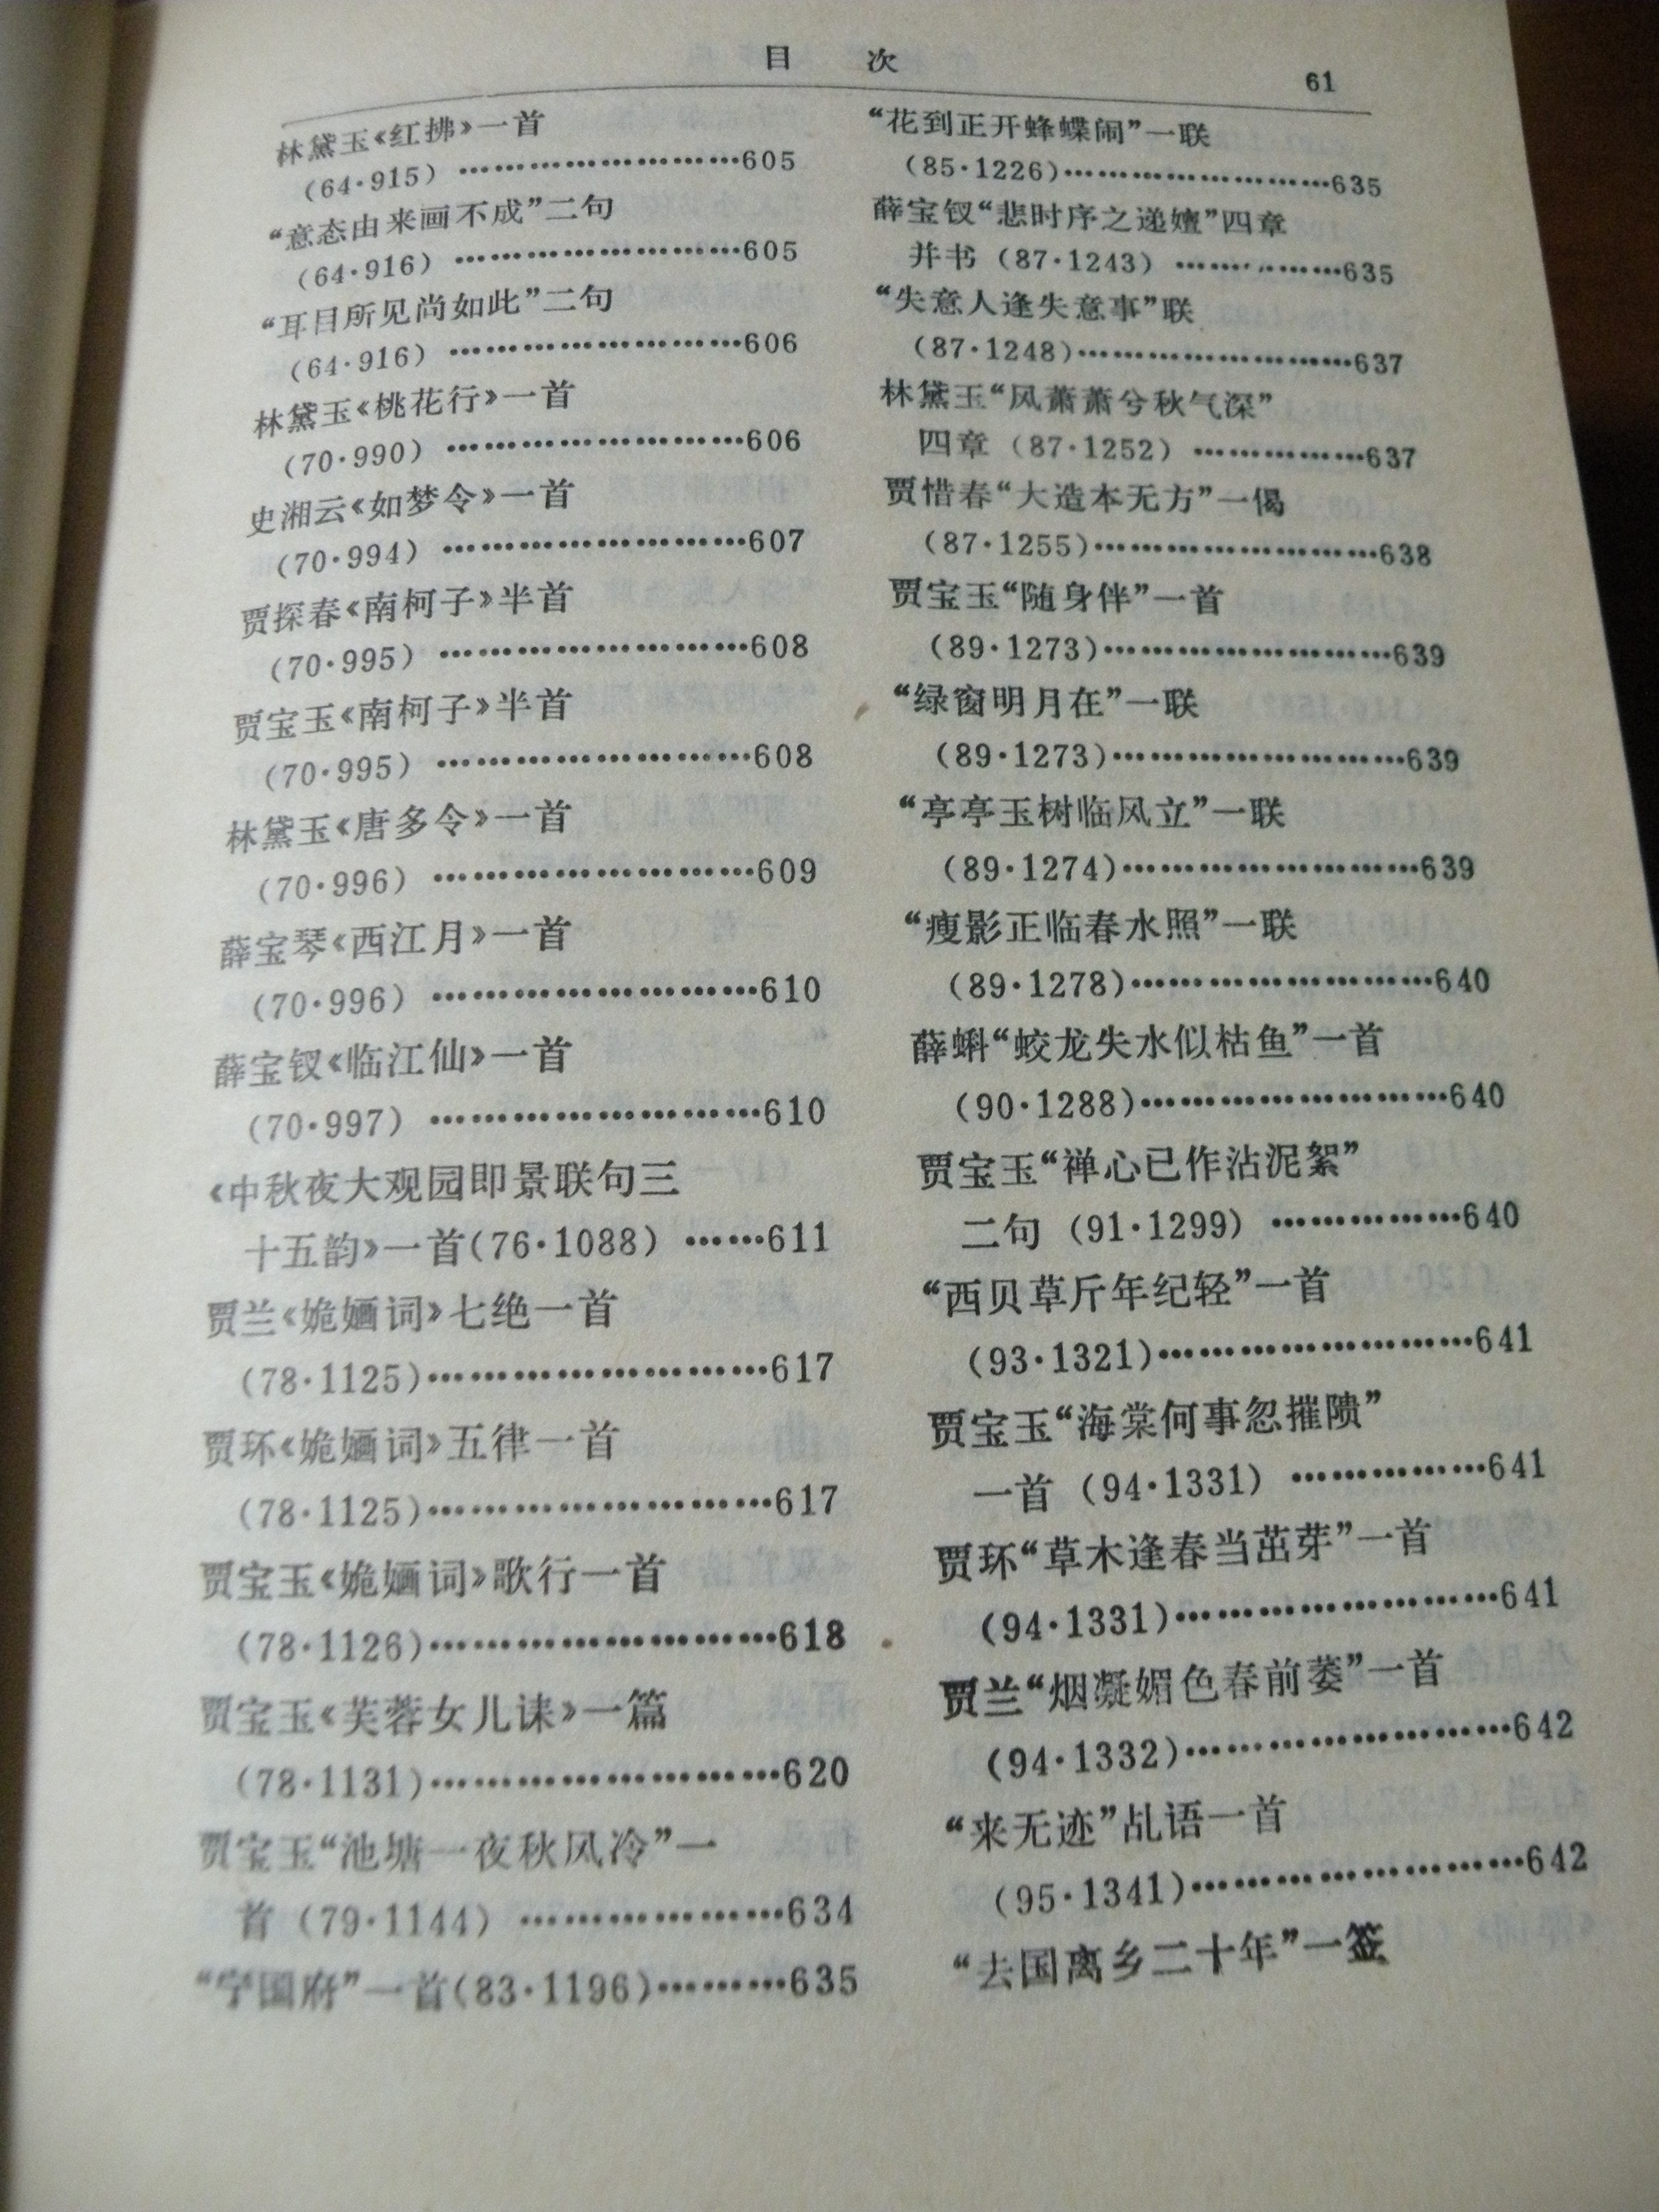 目 次
61
林黛玉《红拂》一首
(64·915) ………………………605
“意态由来画不成”二句
(64·916) ………………………605
“耳目所见尚如此”二句
(64·916) ………………………606
林黛玉《桃花行》一首
(70·990) ………………………606
史湘云《如梦令》一首
(70·994) ………………………607
贾探春《南柯子》半首
(70·995) ………………………608
贾宝玉《南柯子》半首
(70·995) ………………………608
林黛玉《唐多令》一首
(70·996) ………………………609
薛宝琴《西江月》一首
(70·996) ………………………610
薛宝钗《临江仙》一首
(70·997) ………………………610
《中秋夜大观园即景联句三
十五韵》一首(76·1088) ……611
贾兰《姽婳词》七绝一首
(78·1125)………………………617
贾环《姽婳词》五律一首
(78·1125)………………………617
贾宝玉《姽婳词》歌行一首
(78·1126)………………………618
贾宝玉《芙蓉女儿诔》一篇
(78·1131)………………………620
贾宝玉“池塘一夜秋风冷”一
首 (79·1144) …………………634
“宁国府”一首(83·1196)………635
“花到正开蜂蝶闹”一联
(85·1226)………………………635
薛宝钗“悲时序之递嬗”四章
并书 (87·1243) ……………635
“失意人逢失意事”联
(87·1248)………………………637
林黛玉“风萧萧兮秋气深”
四章 (87·1252) ……………637
贾惜春“大造本无方”一偈
(87·1255)………………………638
贾宝玉“随身伴”一首
(89·1273)………………………639
“绿窗明月在”一联
(89·1273)………………………639
“亭亭玉树临风立”一联
(89·1274)………………………639
“瘦影正临春水照”一联
(89·1278)………………………640
薛蝌“蛟龙失水似枯鱼”一首
(90·1288)………………………640
贾宝玉“禅心已作沾泥絮”
二句 (91·1299) ……………640
“西贝草斤年纪轻”一首
(93·1321)………………………641
贾宝玉“海棠何事忽摧隤”
一首 (94·1331) ……………641
贾环“草木逢春当茁芽”一首
(94·1331)………………………641
贾兰“烟凝媚色春前萎”一首
(94·1332)………………………642
“来无迹”乩语一首
(95·1341)………………………642
“去国离乡二十年”一签